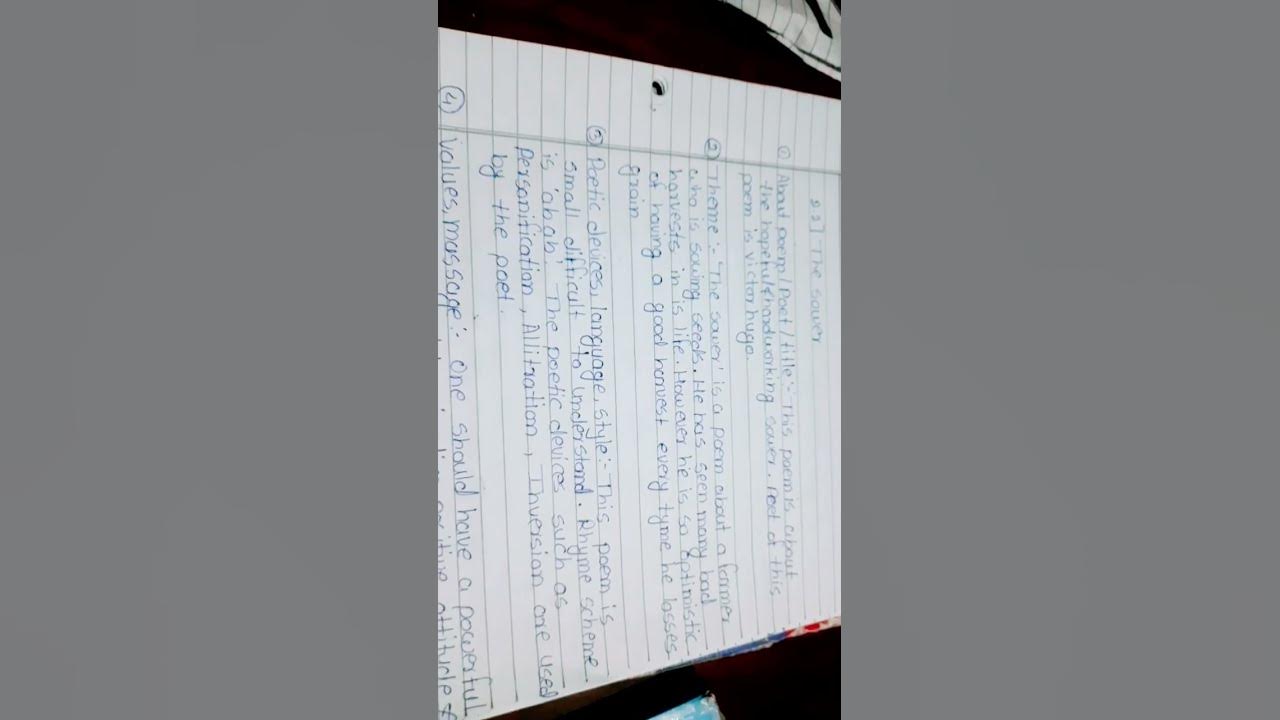 2.2] The sower
① About poem / Poet / title :- This poem is about
the hopeful & handworking sower. Poet of this
poem is victor hugo.
② Theme :- 'The sower' is a poem about a farmer
who is sowing seeds. He has seen many bad
harvests in is life. However he is so optimistic
of having a good harvest every tyme he losses
grain
③ Poetic devices, language, style :- This poem is
small difficult to understand. Rhyme scheme
is 'abab'. The poetic devices such as
Personification, Allitration, Inversion are used
by the poet.
④ values, massage :- One should have a powerful
positive attitude &